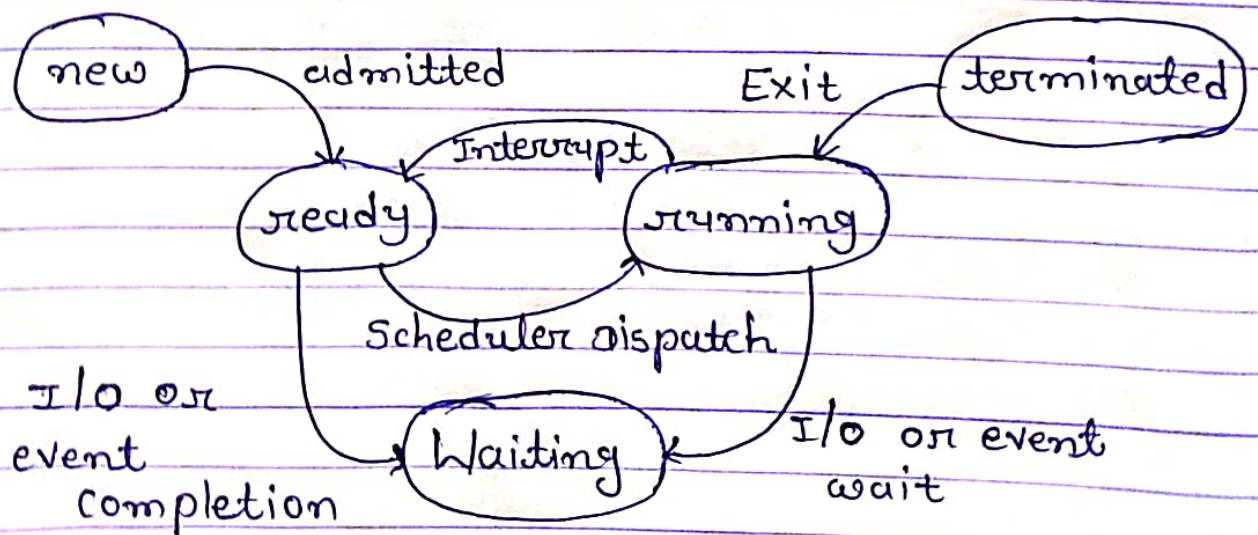 new
admitted
Exit
terminated
Interrupt
ready
running
Scheduler Dispatch
I/O or
event
completion
Waiting
I/O or event
wait